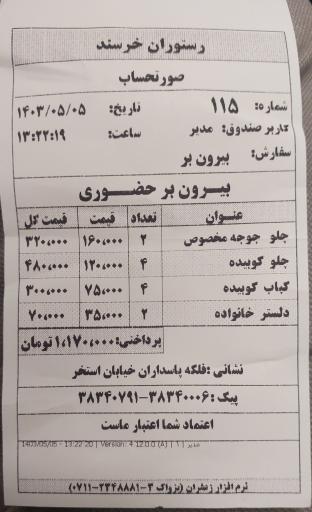 رستوران خرسند
صورتحساب
شماره: ۱۱۵ تاریخ: ۱۴۰۳/۰۵/۰۵
کاربر صندوق: مدیر ساعت: ۱۳:۲۲:۱۹
سفارش: بیرون بر
بیرون بر حضوری
عنوان تعداد قیمت قیمت کل
چلو جوجه مخصوص ۲ ۱۶۰,۰۰۰ ۳۲۰,۰۰۰
چلو کوبیده ۴ ۱۲۰,۰۰۰ ۴۸۰,۰۰۰
کباب کوبیده ۴ ۷۵,۰۰۰ ۳۰۰,۰۰۰
دلستر خانواده ۲ ۳۵,۰۰۰ ۷۰,۰۰۰
پرداختی: ۱,۱۷۰,۰۰۰ تومان
نشانی: فلکه پاسداران خیابان استخر
پیک: ۳۸۳۴۰۰۰۶-۳۸۳۴۰۷۹۱
اعتماد شما اعتبار ماست
1403/05/05 - 13:22:20 | Version: 4.12.0.0 (A) | 1 | مدیر
نرم افزار زعفران (پژواک ۳-۲۳۴۸۸۸۱-۰۷۱۱)